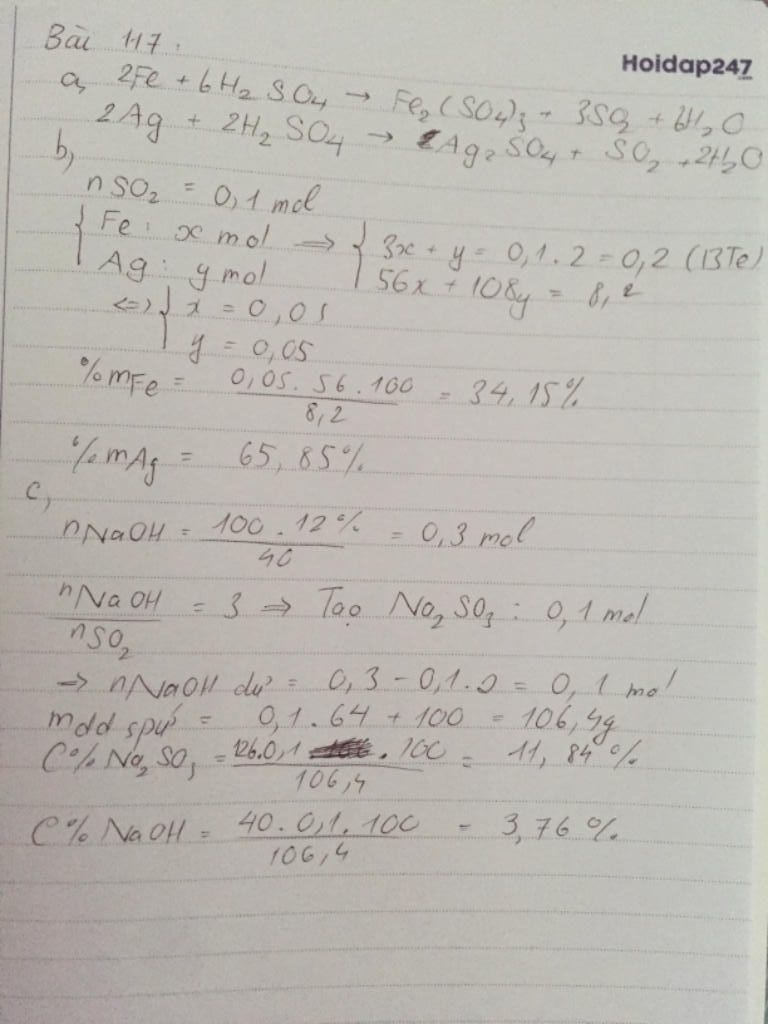 Bài 117.
Hoidap247
a, 2Fe + 6H₂SO₄ → Fe₂(SO₄)₃ + 3SO₂ + 6H₂O
2Ag + 2H₂SO₄ → Ag₂SO₄ + SO₂ + 2H₂O
b,
nSO₂ = 0,1 mol
{ Fe : x mol ⇒ { 3x + y = 0,1.2 = 0,2 (BTe)
Ag : y mol 56x + 108y = 8,2
⇔ { x = 0,05
y = 0,05
%mFe = 0,05.56.100 / 8,2 = 34,15%
%mAg = 65,85%
c,
nNaOH = 100.12% / 40 = 0,3 mol
nNaOH / nSO₂ = 3 ⇒ Tạo Na₂SO₃ : 0,1 mol
⇒ nNaOH dư = 0,3 - 0,1.2 = 0,1 mol
mdd spứ = 0,1.64 + 100 = 106,4g
C% Na₂SO₃ = 126.0,1 .100 / 106,4 = 11,84%
C% NaOH = 40.0,1.100 / 106,4 = 3,76%